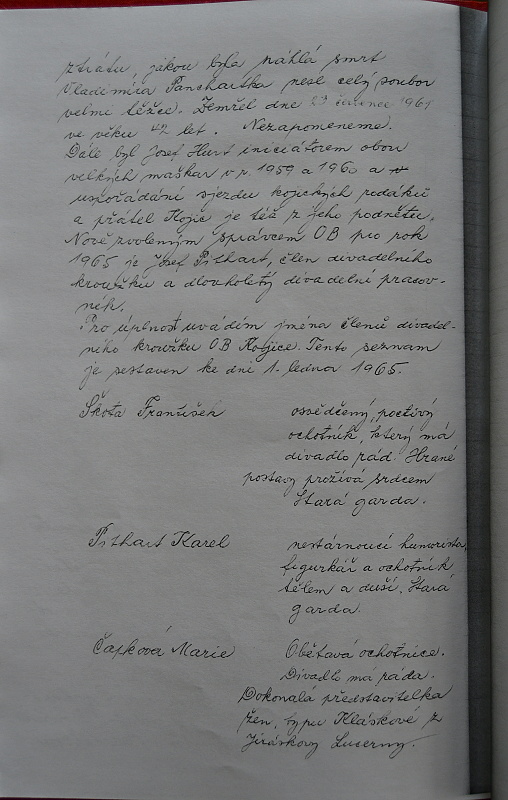 ztrátu, jakou byla náhlá smrt
Vladimíra Panchartka nesl celý soubor
velmi těžce. Zemřel dne 23 července 1961
ve věku 42 let. Nezapomeneme.
Dále byl Josef Hurt iniciátorem obou
velkých maškar v r. 1959 a 1960 a
uspořádání sjezdu kojických rodáků
a přátel Kojic je též z jeho podnětu.
Nově zvoleným správcem OB pro rok
1965 je Josef Pithart, člen divadelního
kroužku a dlouholetý divadelní pracov-
ník.
Pro úplnost uvádím jména členů divadel-
ního kroužku OB Kojice. Tento seznam
je sestaven ke dni 1. lednov 1965.
Škota František osvědčený, poctivý
ochotník, který má
divadlo rád. Hrané
postavy prožívá srdcem
Stará garda.
Pithart Karel nestárnoucí humorista,
figurkář a ochotník
tělem a duší. Stará
garda.
Čapková Marie Obětavá ochotnice.
Divadlo má ráda.
Dokonalá představitelka
žen, typu Kláskové z
Jiráskovy Lucerny.